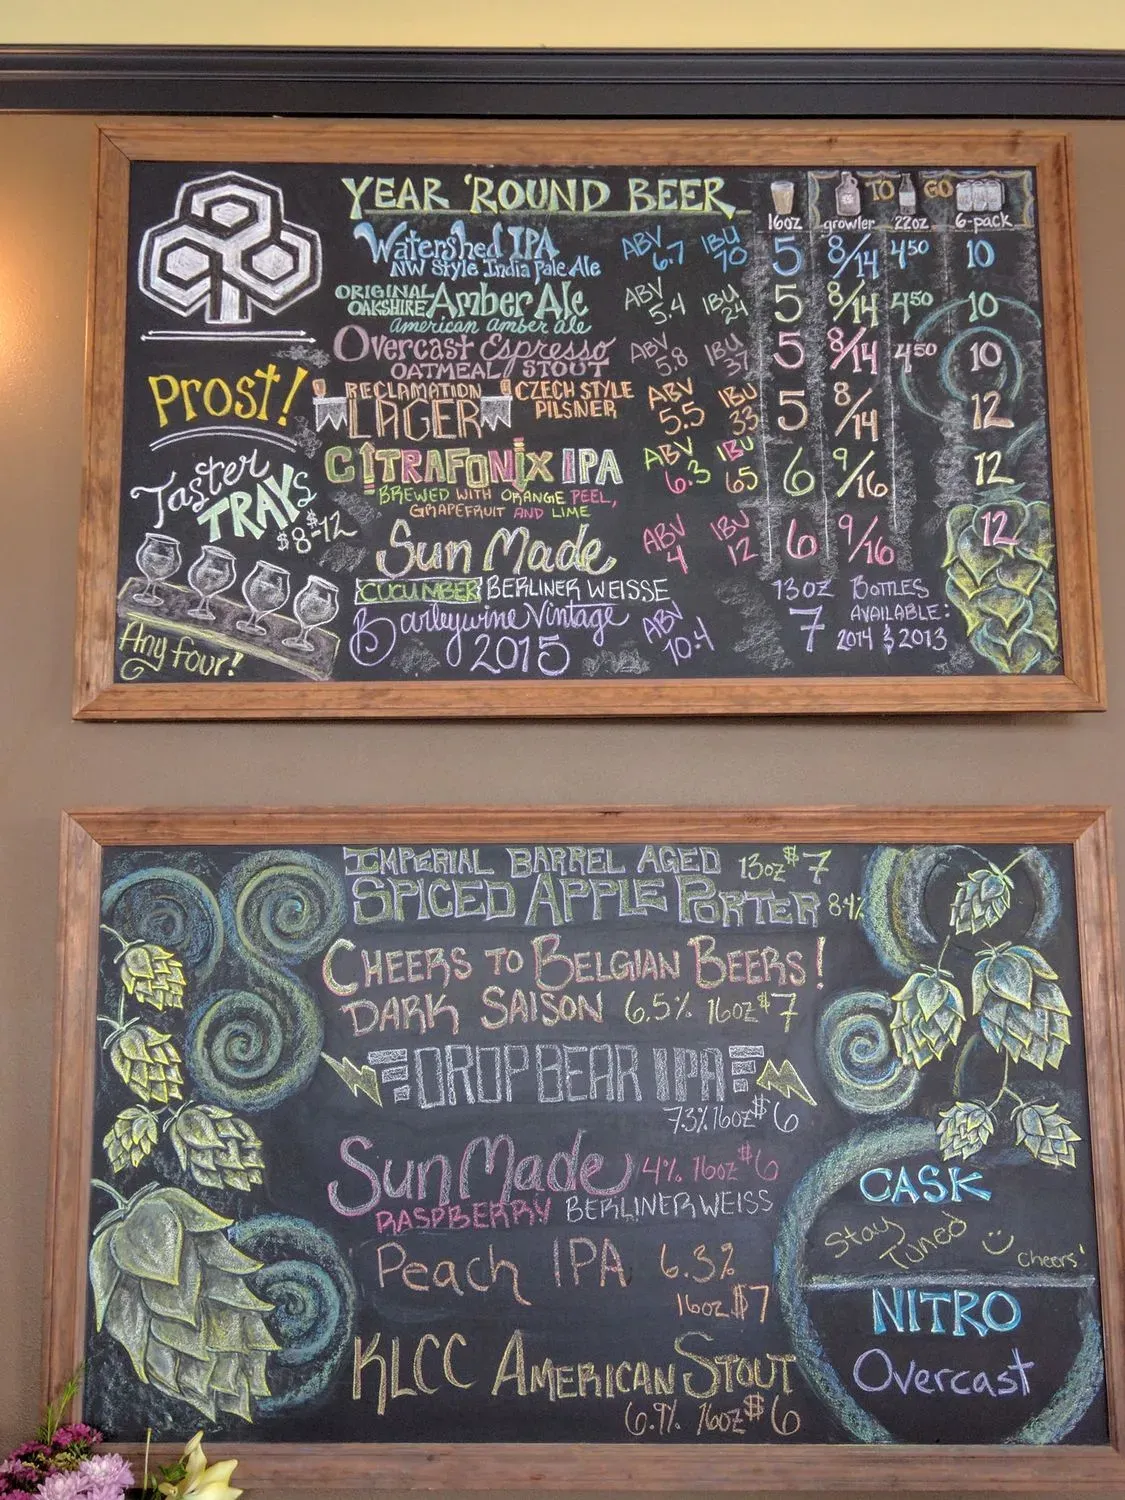 YEAR 'ROUND BEER
TO GO
16oz growler 22oz 6-pack
Watershed IPA ABV 6.7 IBU 70 5 8/14 4.50 10
NW Style India Pale Ale
ORIGINAL OAKSHIRE Amber Ale ABV 5.4 IBU 24 5 8/14 4.50 10
american amber ale
Overcast Espresso ABV 5.8 IBU 37 5 8/14 4.50 10
OATMEAL STOUT
RECLAMATION LAGER CZECH STYLE PILSNER ABV 5.5 IBU 33 5 8/14 12
CITRAFONIX IPA ABV 6.3 IBU 65 6 9/16 12
BREWED WITH ORANGE PEEL,
GRAPEFRUIT AND LIME
Sun Made ABV 4 IBU 12 6 9/16 12
CUCUMBER BERLINER WEISSE
Barleywine Vintage ABV 10.4 13oz 7
2015
BOTTLES
AVAILABLE:
2014 & 2013
Prost!
Taster
TRAYS
$8-$12
Any four!
IMPERIAL BARREL AGED 13oz $7
SPICED APPLE PORTER 8.4%
CHEERS TO BELGIAN BEERS!
DARK SAISON 6.5% 16oz $7
DROPBEAR IPA
7.3% 16oz $6
Sun Made 4% 16oz $6
RASPBERRY BERLINER WEISS
Peach IPA 6.3%
16oz $7
KLCC AMERICAN STOUT
6.9% 16oz $6
CASK
Stay
Tuned
Cheers!
NITRO
Overcast